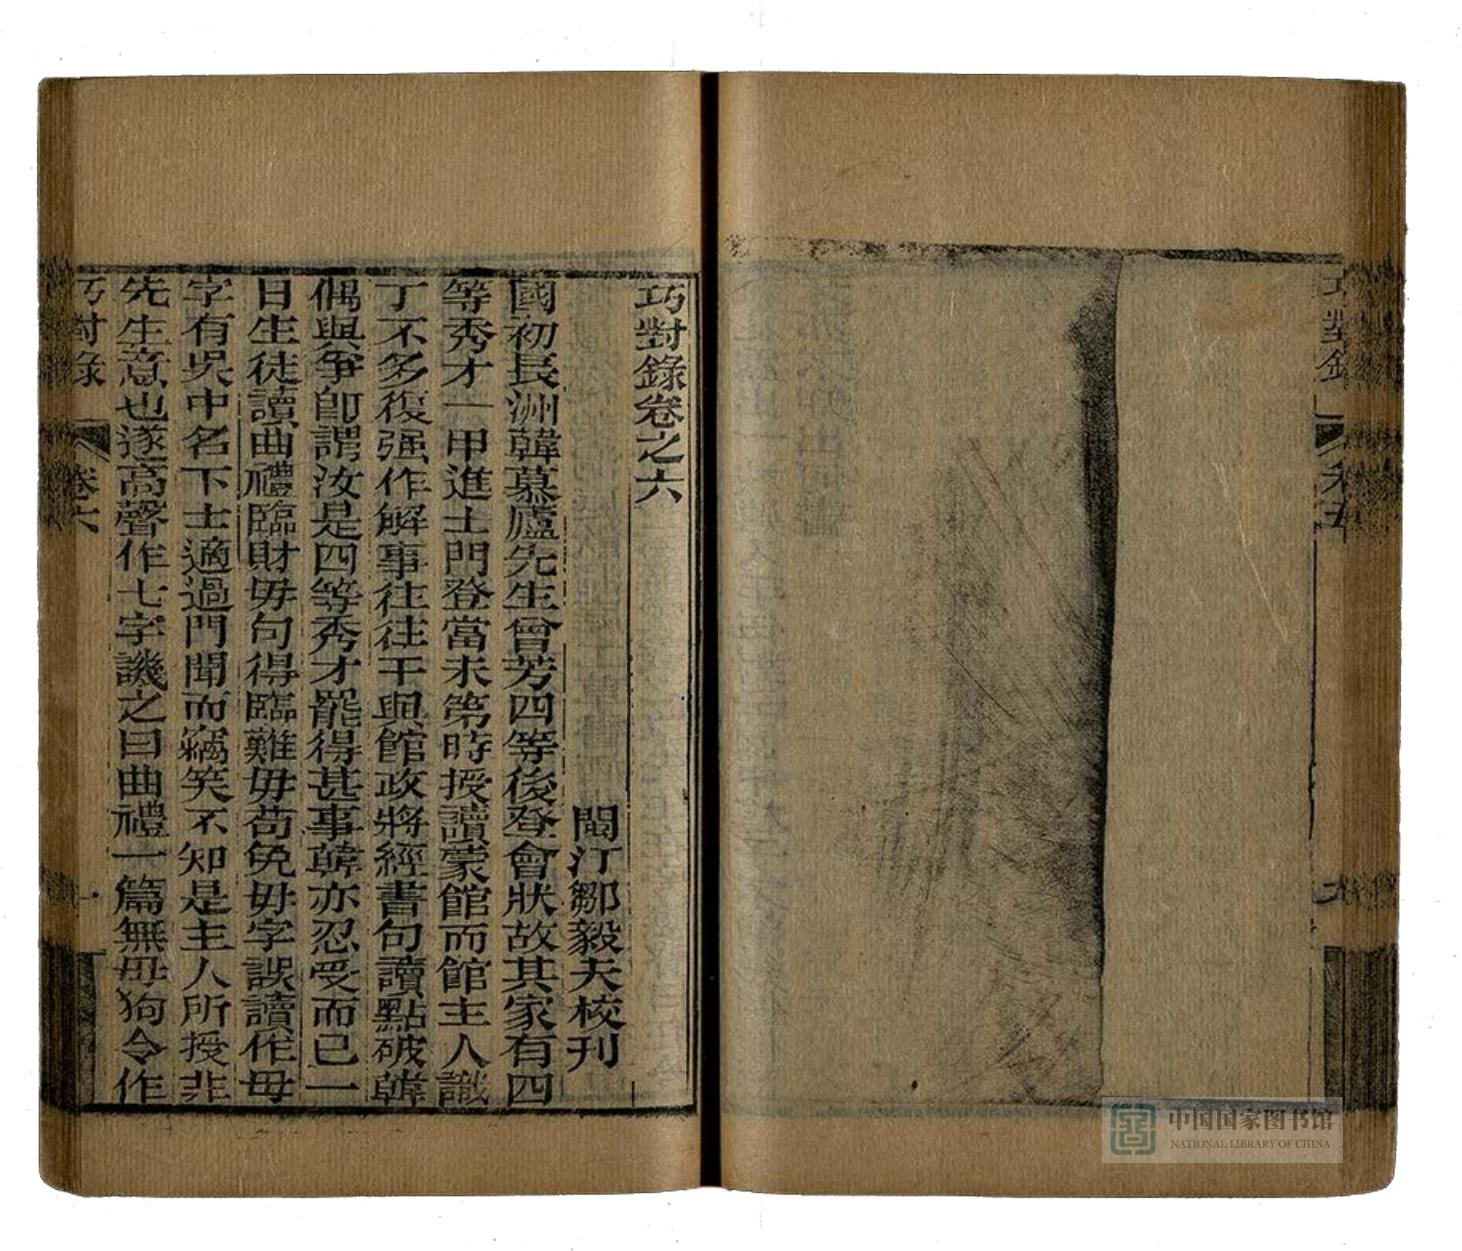 巧對錄卷之六
閩汀鄒毅夫校刊
國初長洲韓慕廬先生曾芳四等後登會狀故其家有四
等秀才一甲進士門登當未第時授讀蒙館而館主人識
丁不多復强作解事往往干與館政將經書句讀點破韓
偶與爭卽謂汝是四等秀才罷得甚事韓亦忍受而已一
日生徒讀曲禮臨財毋句得臨難毋苟免毋字誤讀作母
字有吳中名下士適過門聞而竊笑不知是主人所授非
先生意也遂高聲作七字譏之曰曲禮一篇無母狗令作
巧對錄
卷六
一
巧對錄
卷五
中国国家图书馆
NATIONAL LIBRARY OF CHINA